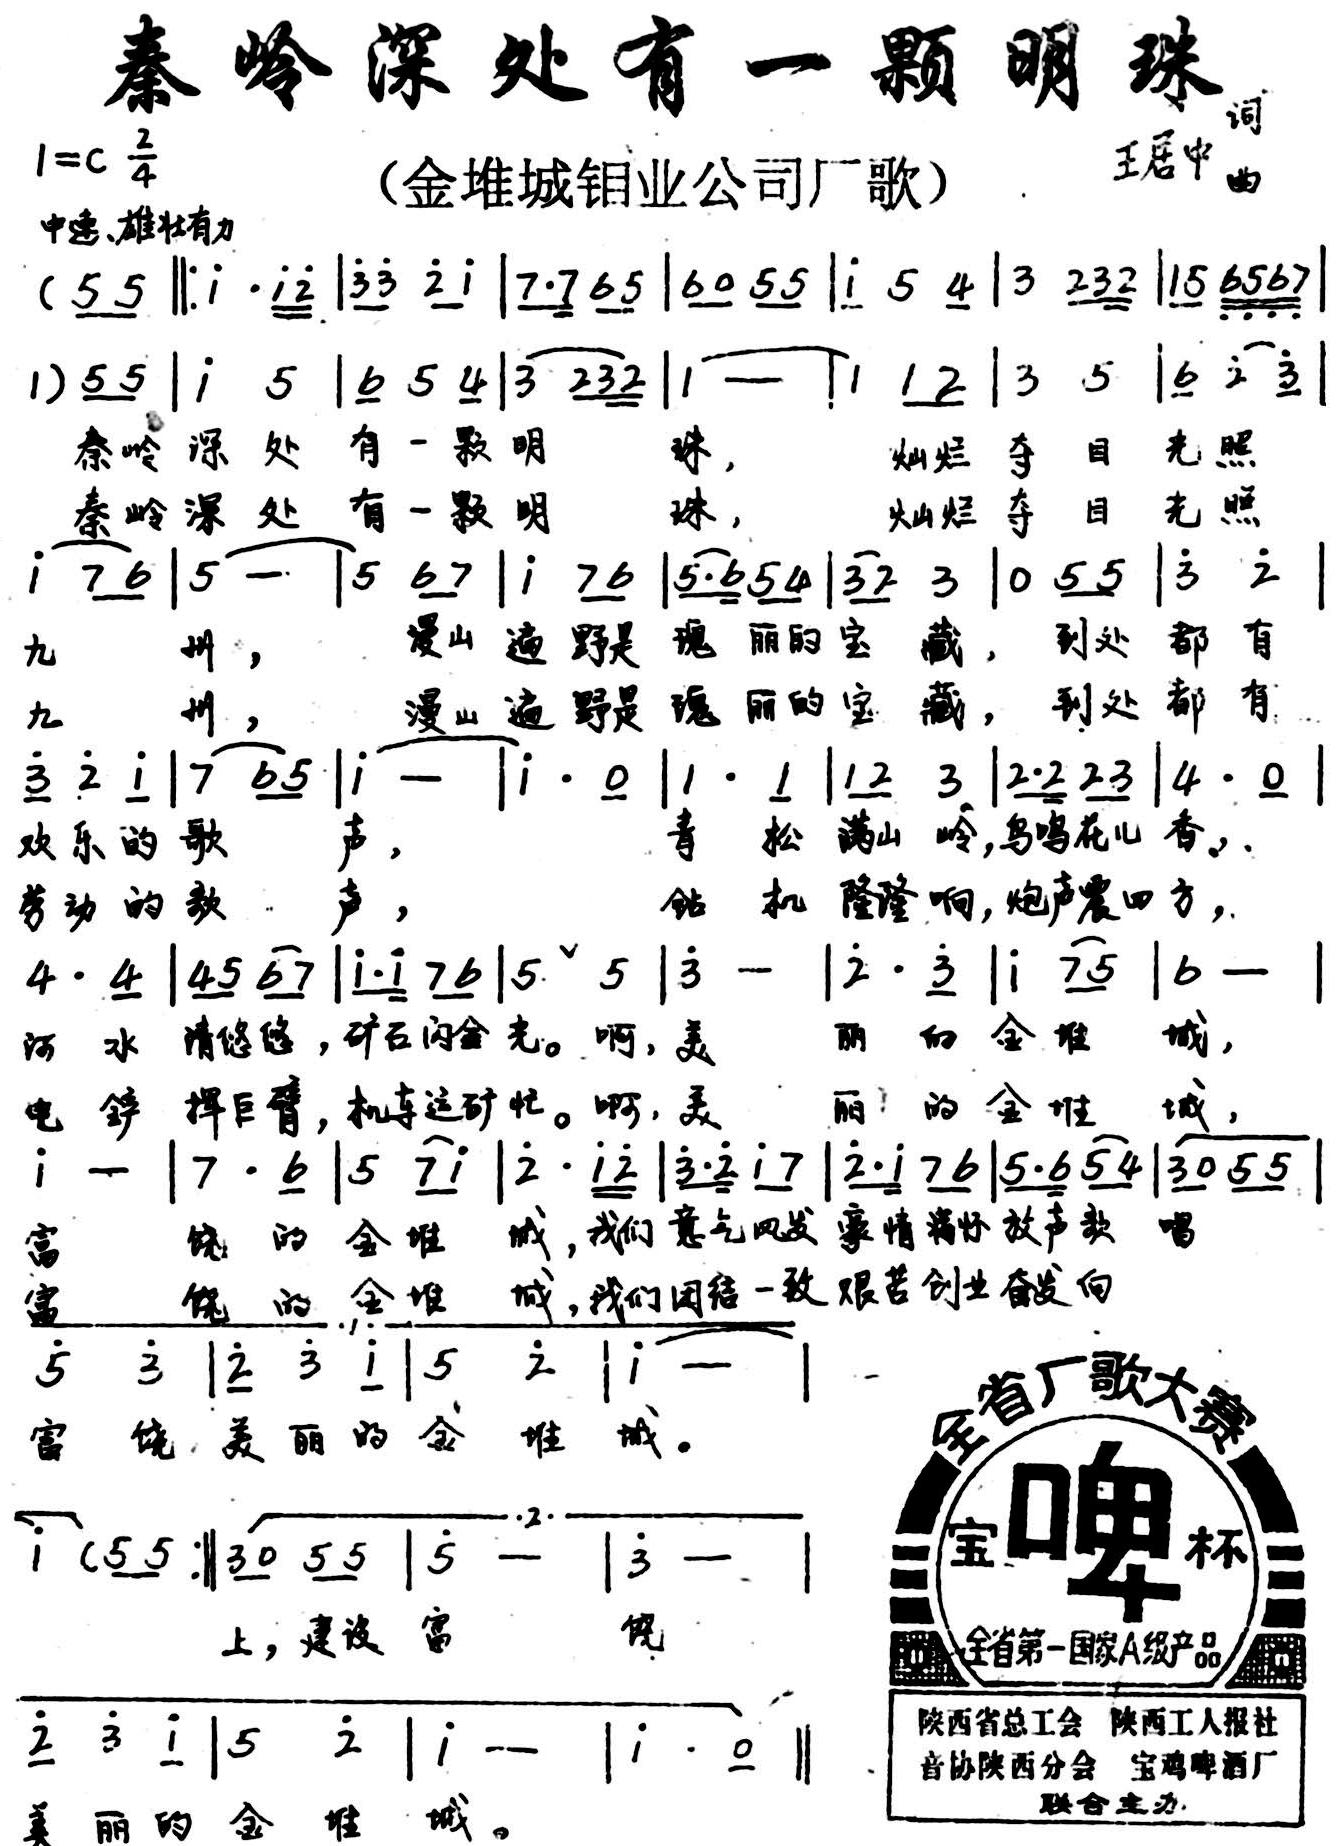 秦岭深处有一颗明珠
1=C 2/4
(金堆城钼业公司厂歌)
王居中 词曲
中速、雄壮有力
( 5 5 ‖: i · i 2 | 3 3 2 i | 7 · 7 6 5 | 6 0 5 5 | i 5 4 | 3 2 3 2 | 1 5 6 5 6 7 |
1 ) 5 5 | i 5 | 6 5 4 | 3 2 3 2 | 1 — | 1 1 2 | 3 5 | 6 2 3 |
秦岭深处有一颗明珠,灿烂夺目光照
秦岭深处有一颗明珠,灿烂夺目光照
i 7 6 | 5 — | 5 6 7 | i 7 6 | 5 · 6 5 4 | 3 2 3 | 0 5 5 | 3 2 |
九州,漫山遍野是瑰丽的宝藏,到处都有
九州,漫山遍野是瑰丽的宝藏,到处都有
3 2 i | 7 6 5 | i — | i · 0 | 1 · 1 | 1 2 3 | 2 · 2 2 3 | 4 · 0 |
欢乐的歌声,青松满山岭,鸟鸣花儿香,
劳动的歌声,钻机隆隆响,炮声震四方,
4 · 4 | 4 5 6 7 | i · i 7 6 | 5 ˅ 5 | 3 — | 2 · 3 | i 7 5 | 6 — |
河水清悠悠,矿石闪金光。啊,美丽的金堆城,
电铲挥巨臂,机车运矿忙。啊,美丽的金堆城,
i — | 7 · 6 | 5 7 i | 2 · i 2 | 3 · 2 i 7 | 2 · i 7 6 | 5 · 6 5 4 | 3 0 5 5 |
富饶的金堆城,我们意气风发豪情满怀放声歌唱
富饶的金堆城,我们团结一致艰苦创业奋发向
·1·
5 3 | 2 3 i | 5 2 | i — |
富饶美丽的金堆城。
·2·
i ( 5 5 :‖ 3 0 5 5 | 5 — | 3 — |
上,建设富饶
2 3 i | 5 2 | i — | i · 0 ‖
美丽的金堆城。
全省厂歌大赛
宝啤杯
全省第一国家A级产品
陕西省总工会 陕西工人报社
音协陕西分会 宝鸡啤酒厂
联合主办